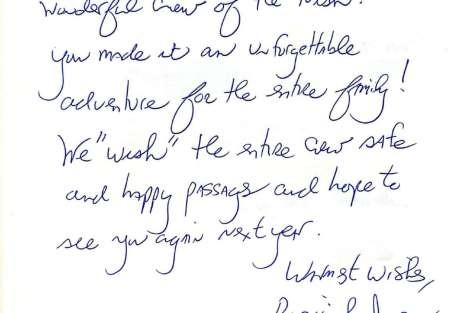 Wonderful Crew of the Wish!
You made it an unforgettable
adventure for the entire family!
We "wish" the entire Crew safe
and happy passage and hope to
see you again next year.
Warmest Wishes,